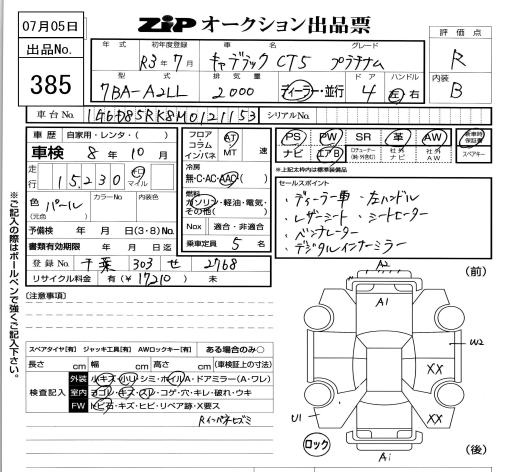 07月05日
出品No.
385
ZIP オークション出品票
年式 初年度登録 車名 グレード
R3年7月 キャデラック CT5 プラチナム
型式 排気量 ドア ハンドル
7BA-A2LL 2000 ディーラー・並行 4 左 右
評価点
R
内装
B
車台No. 1G6D85RK8M0121153 シリアルNo.
車歴 自家用・レンタ・( )
車検 8年10月
走行 15,230 キロ マイル
色 (元色) パール カラーNo. 内装色
予備検 年 月 日(3・8)No.
書類有効期限 年 月 日迄
登録No. 千葉 303 せ 2768
リサイクル料金 有(¥17210) 未
フロア コラム インパネ AT MT 速
冷房
無・C・AC・AAC
燃料
ガソリン・軽油・電気・その他( )
Nox 適合・非適合
乗車定員 5 名
PS PW SR 革 AW 新車時保証書
ナビ エアB 社外ナビ 社外AW スペアキー
※上記太枠内は標準装備品
セールスポイント
・ディーラー車 ・左ハンドル
・レザーシート ・シートヒーター
・ベンチレーター
・デジタルインナーミラー
※ご記入の際はボールペンで強くご記入下さい。
[注意事項]
スペアタイヤ[有] ジャッキ工具[有] AWロックキー[有] ある場合のみ○
長さ cm 幅 cm 高さ cm (車検証上の寸法)
検査記入
外装 小キズ・小U・シミ・ホイルA・ドアミラー(A・ワレ)
室内 ヨゴレ・キズ・スレ・コゲ・穴・キレ・破れ・ウキ
FW トビ石・キズ・ヒビ・リペア跡・X要ス
(前)
A2
A1
W2
XX
XX
U1
ロック
A1
(後)